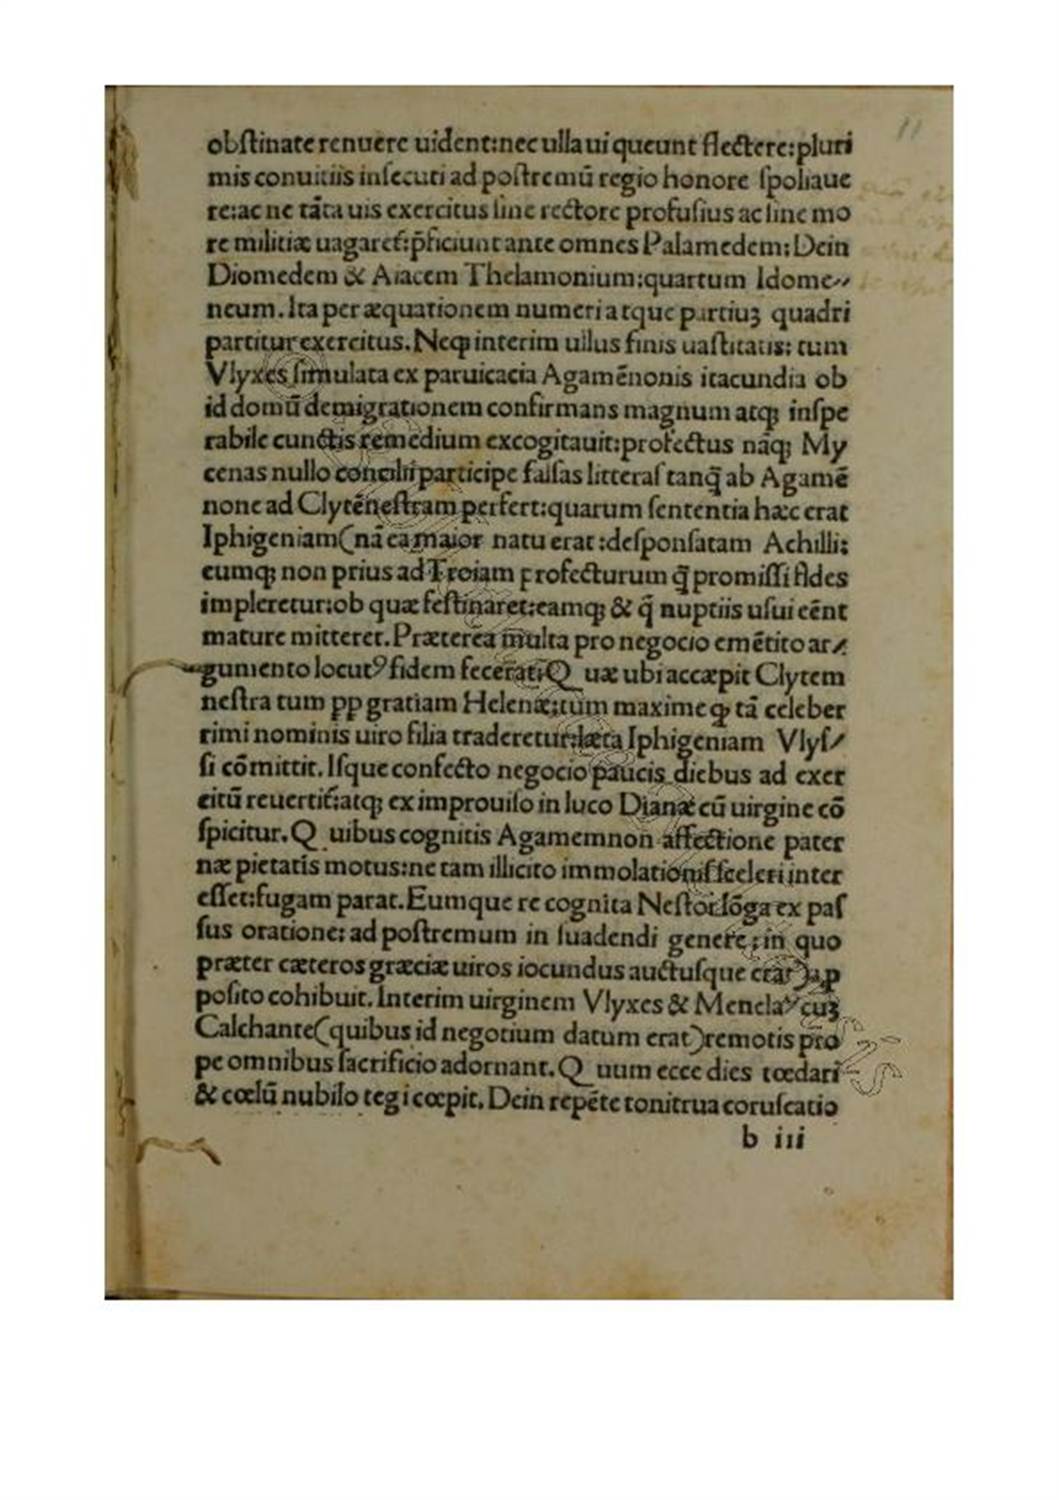 11
obſtinate renuere uident:nec ulla ui queunt flectere:pluri
mis conuitiis inſecuti ad poſtremū regio honore ſpoliaue
re:ac ne tāta uis exercitus ſine rectore profuſius ac ſine mo
re militiæ uagaret̃:p̄ficiunt ante omnes Palamedem:Dein
Diomedem & Aiacem Thelamonium:quartum Idome//
neum.Ita per æquationem numeri atque partiuꝫ quadri
partitur exercitus.Neqꝫ interim ullus finis uaſtitatis: tum
Vlyxes ſimulata ex paruicacia Agamēnonis iracundia ob
id domū demigrationem confirmans magnum atqꝫ inſpe
rabile cunctis remedium excogitauit:profectus nāqꝫ My
cenas nullo concilii participe falſas litteraſ tanq̄ ab Agamē
none ad Clytēneſtram perfert:quarum ſententia hæc erat
Iphigeniam(nā ea maior natu erat:deſponſatam Achilli:
eumqꝫ non prius ad Troiam profecturum q̄ promiſſi fides
impleretur:ob quæ feſtinaret:eamqꝫ & q̄ nuptiis uſui eēnt
mature mitteret.Præterea multa pro negocio emētito ar/
gumento locutꝰ fidem fecerat:Q uæ ubi accæpit Clytem
neſtra tum ꝓp gratiam Helenæ:tum maxime qꝫ tā celeber
rimi nominis uiro filia traderetur:læta Iphigeniam Vlyſ/
ſi cōmittit.Iſque confecto negocio paucis diebus ad exer
citū reuertit̃:atqꝫ ex improuiſo in luco Dianæ cū uirgine cō
ſpicitur.Q uibus cognitis Agamemnon affectione pater
næ pietatis motus:ne tam illicito immolationiſ ſceleri inter
eſſet:fugam parat.Eumque re cognita Neſtor lōga ex paſ
ſus oratione: ad poſtremum in ſuadendi genere:in quo
præter cæteros græciæ uiros iocundus auctuſque erat)a p
poſito cohibuit.Interim uirginem Vlyxes & Menelaꝰ cuꝫ
Calchante(quibus id negotium datum erat)remotis pro
pe omnibus ſacrificio adornant.Q uum ecce dies tœdari
& cœlū nubilo tegi cœpit.Dein repēte tonitrua coruſcatio
b iii